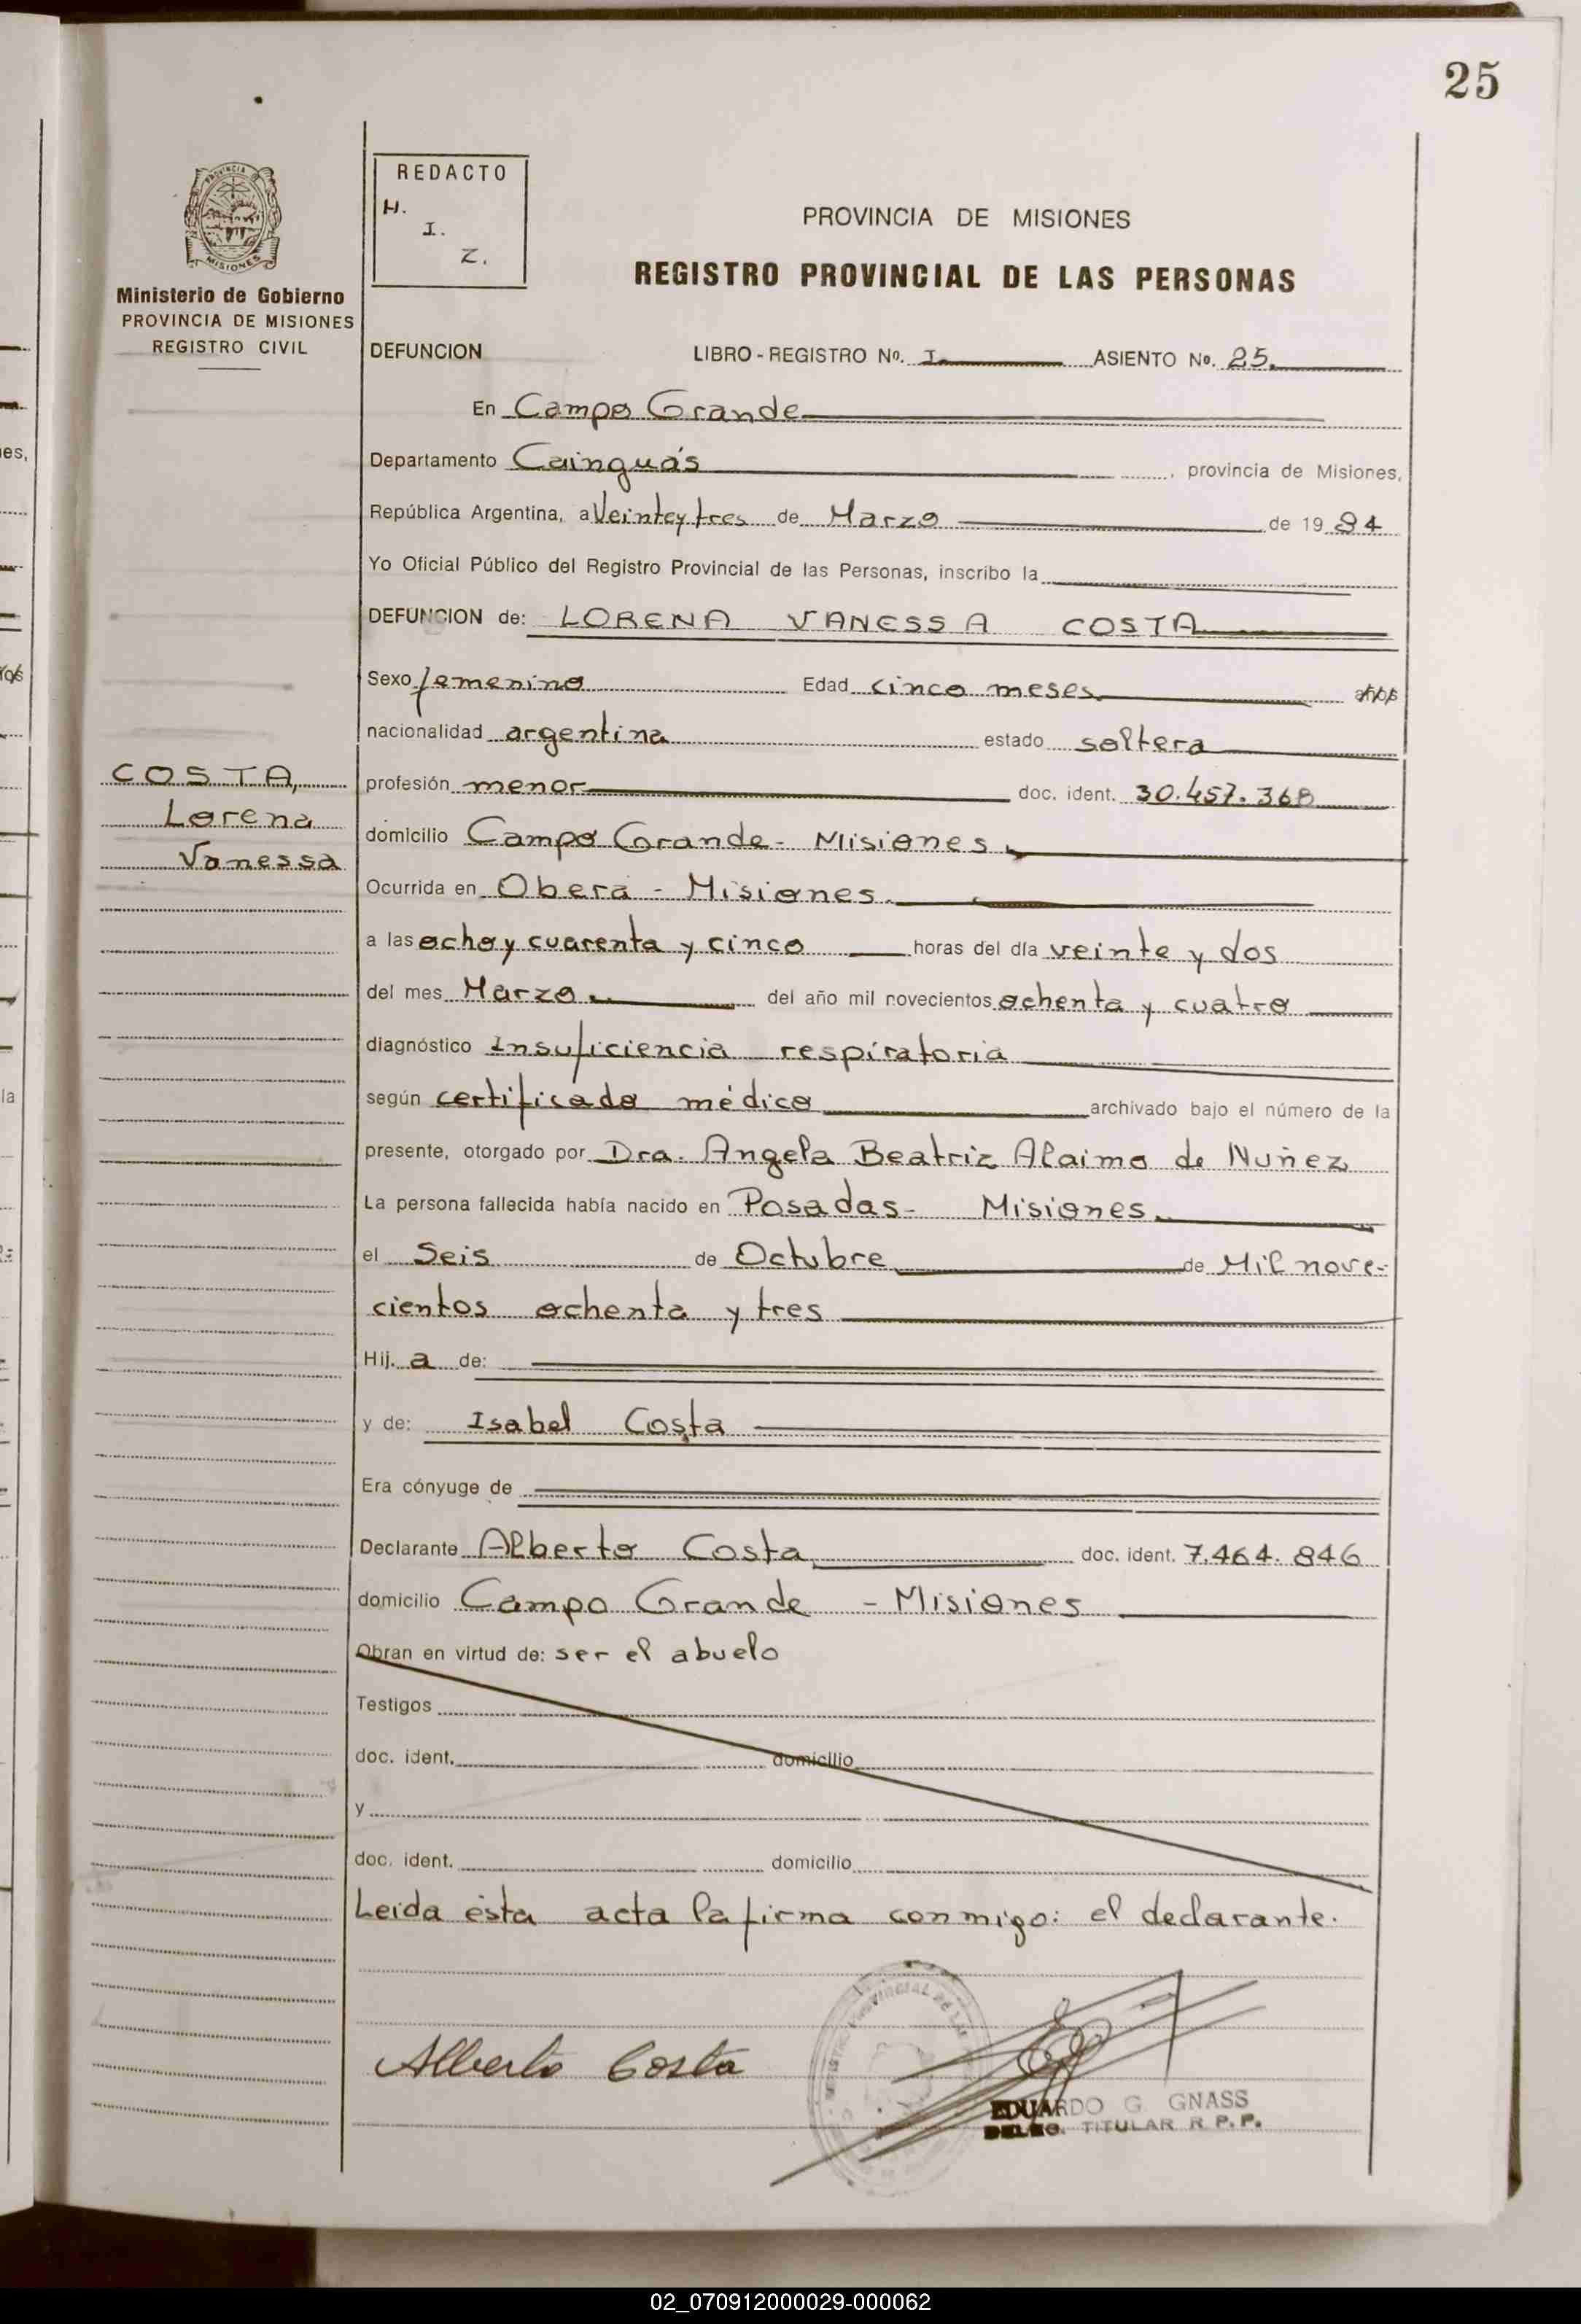 25
REDACTO
H.
I.
Z.
PROVINCIA DE MISIONES
REGISTRO PROVINCIAL DE LAS PERSONAS
PROVINCIA
MISIONES
Ministerio de Gobierno
PROVINCIA DE MISIONES
REGISTRO CIVIL
DEFUNCION LIBRO - REGISTRO Nº. I ASIENTO Nº. 25.
En Campo Grande
Departamento Cainguás , provincia de Misiones,
República Argentina, a Veinte y tres de Marzo de 19 84
Yo Oficial Público del Registro Provincial de las Personas, inscribo la
DEFUNCION de: LORENA VANESSA COSTA
Sexo femenino Edad cinco meses años
nacionalidad argentina estado soltera
COSTA,
Lorena
Vanessa
profesión menor doc. ident. 30.457.368
domicilio Campo Grande - Misiones
Ocurrida en Obera - Misiones.
a las ocho y cuarenta y cinco horas del día veinte y dos
del mes Marzo del año mil novecientos ochenta y cuatro
diagnóstico Insuficiencia respiratoria
según certificado médico archivado bajo el número de la
presente, otorgado por Dra. Angela Beatriz Alaimo de Nuñez
La persona fallecida había nacido en Posadas - Misiones
el Seis de Octubre de Mil nove-
cientos ochenta y tres
Hij. a de:
y de: Isabel Costa
Era cónyuge de
Declarante Alberto Costa doc. ident. 7.464.846
domicilio Campo Grande - Misiones
Obran en virtud de: ser el abuelo
Testigos
doc. ident. domicilio
y
doc. ident. domicilio
Leída ésta acta la firma conmigo: el declarante.
Alberto Costa
EDUARDO G. GNASS
DELEG. TITULAR R.P.P.
02_070912000029-000062